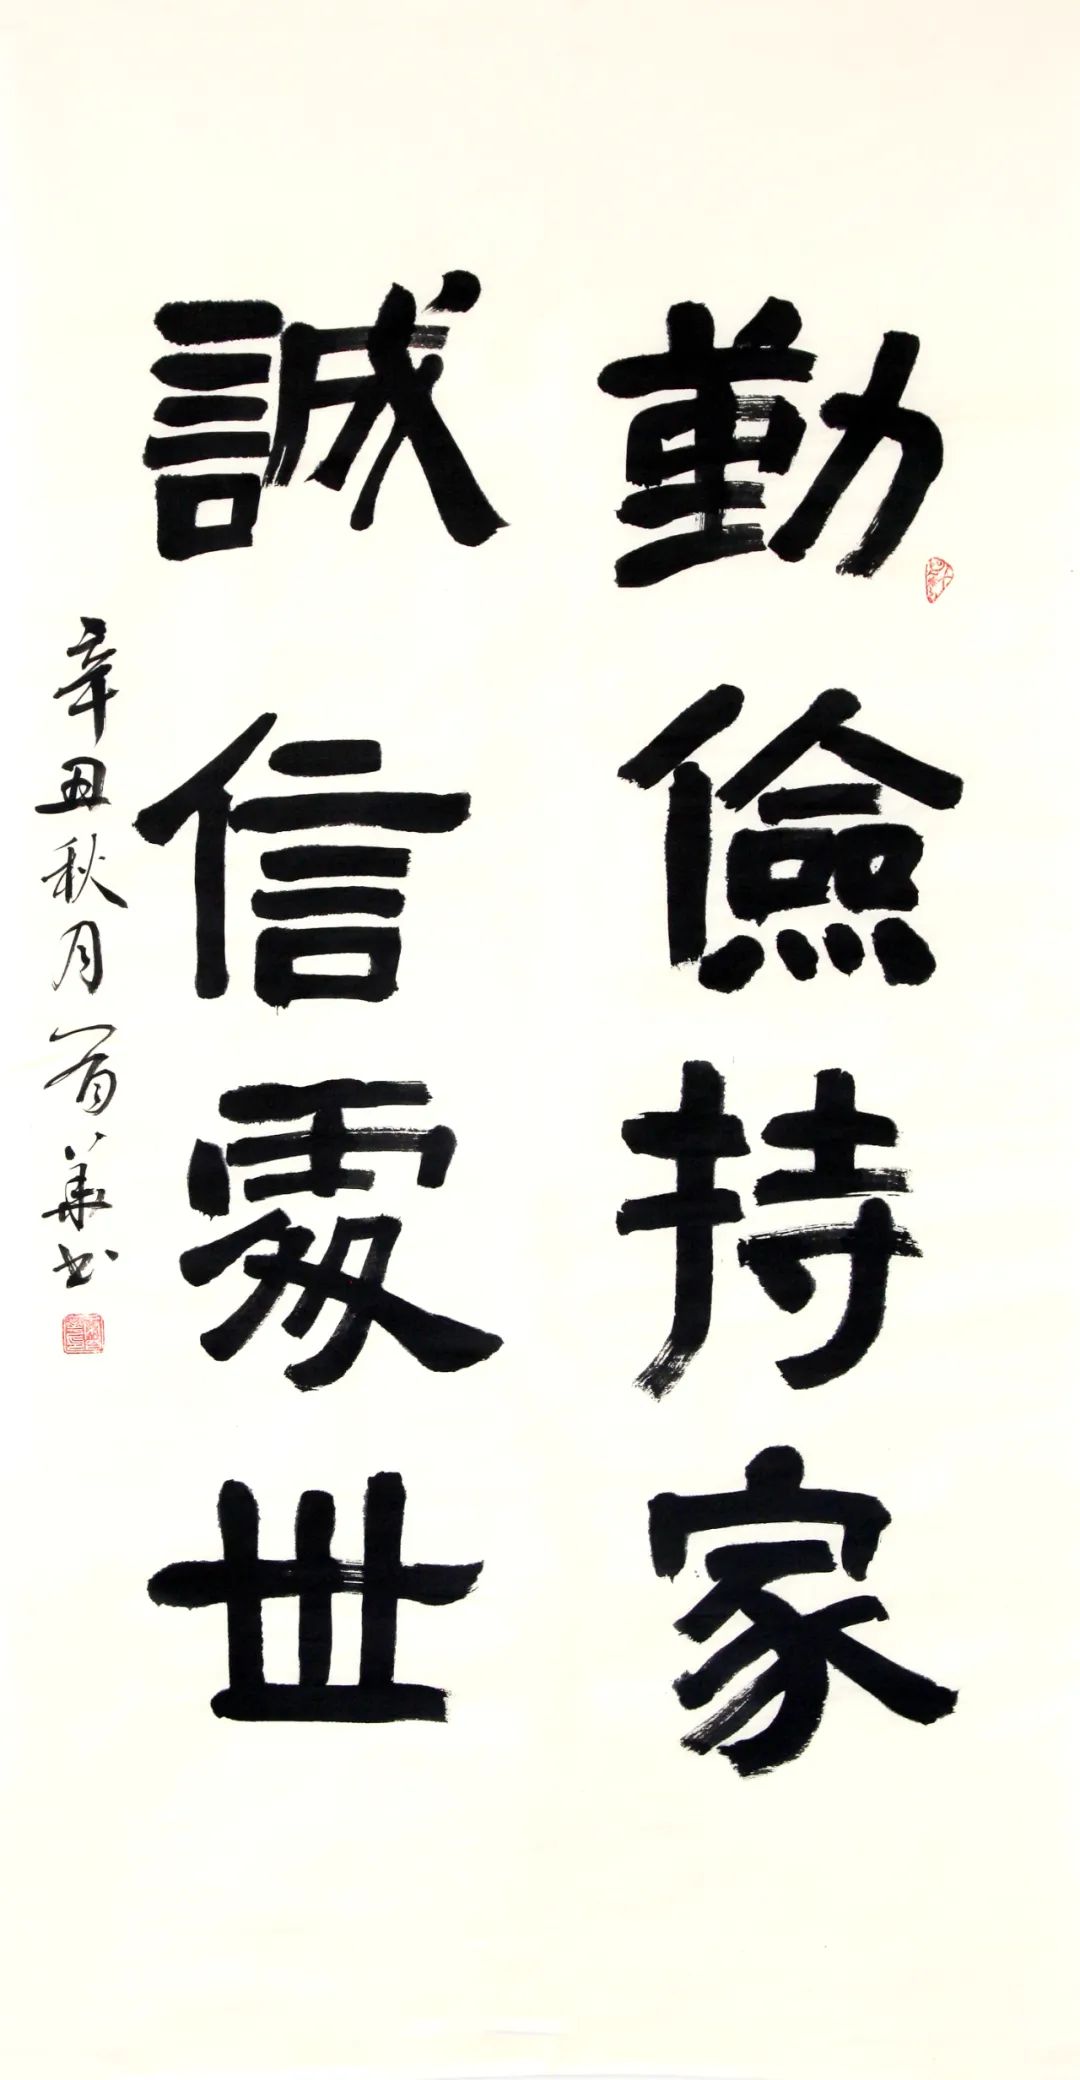 勤儉持家
誠信處世
辛丑秋月首華书